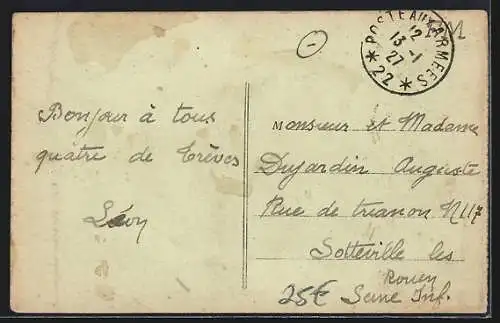 POSTE AUX ARMEES
12
13-1
27
* 22 *
Bonjour à tous
quatre de Trèves
Monsieur et Madame
Dujardin Auguste
Rue de trianon N 117
Sotteville les
Rouen
25€ Seine Inf.